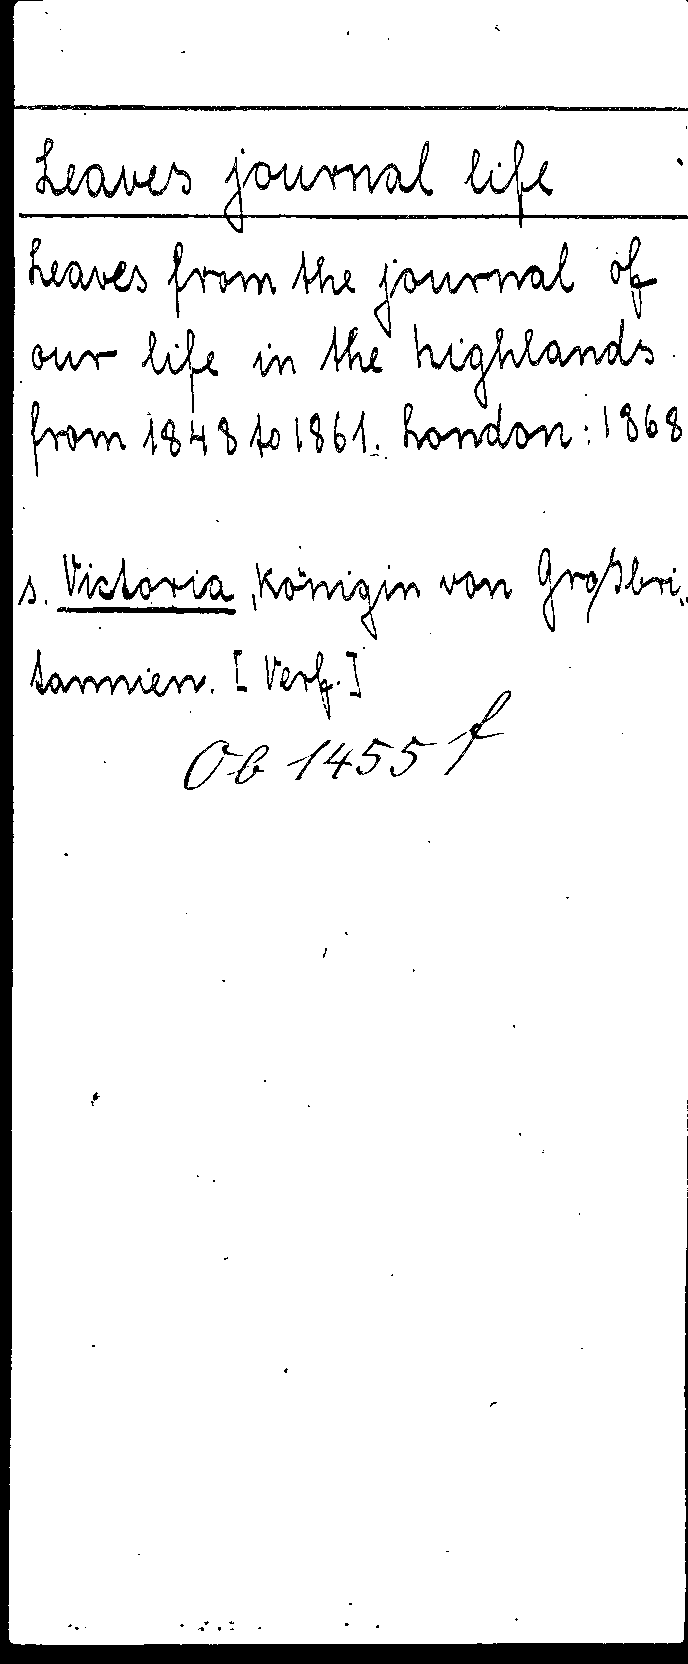 Leaves journal life
Leaves from the journal of
our life in the highlands
from 1848 to 1861. London: 1868
s. Victoria, Königin von Großbri-
tannien. [Verf.]
Ob 1455 f